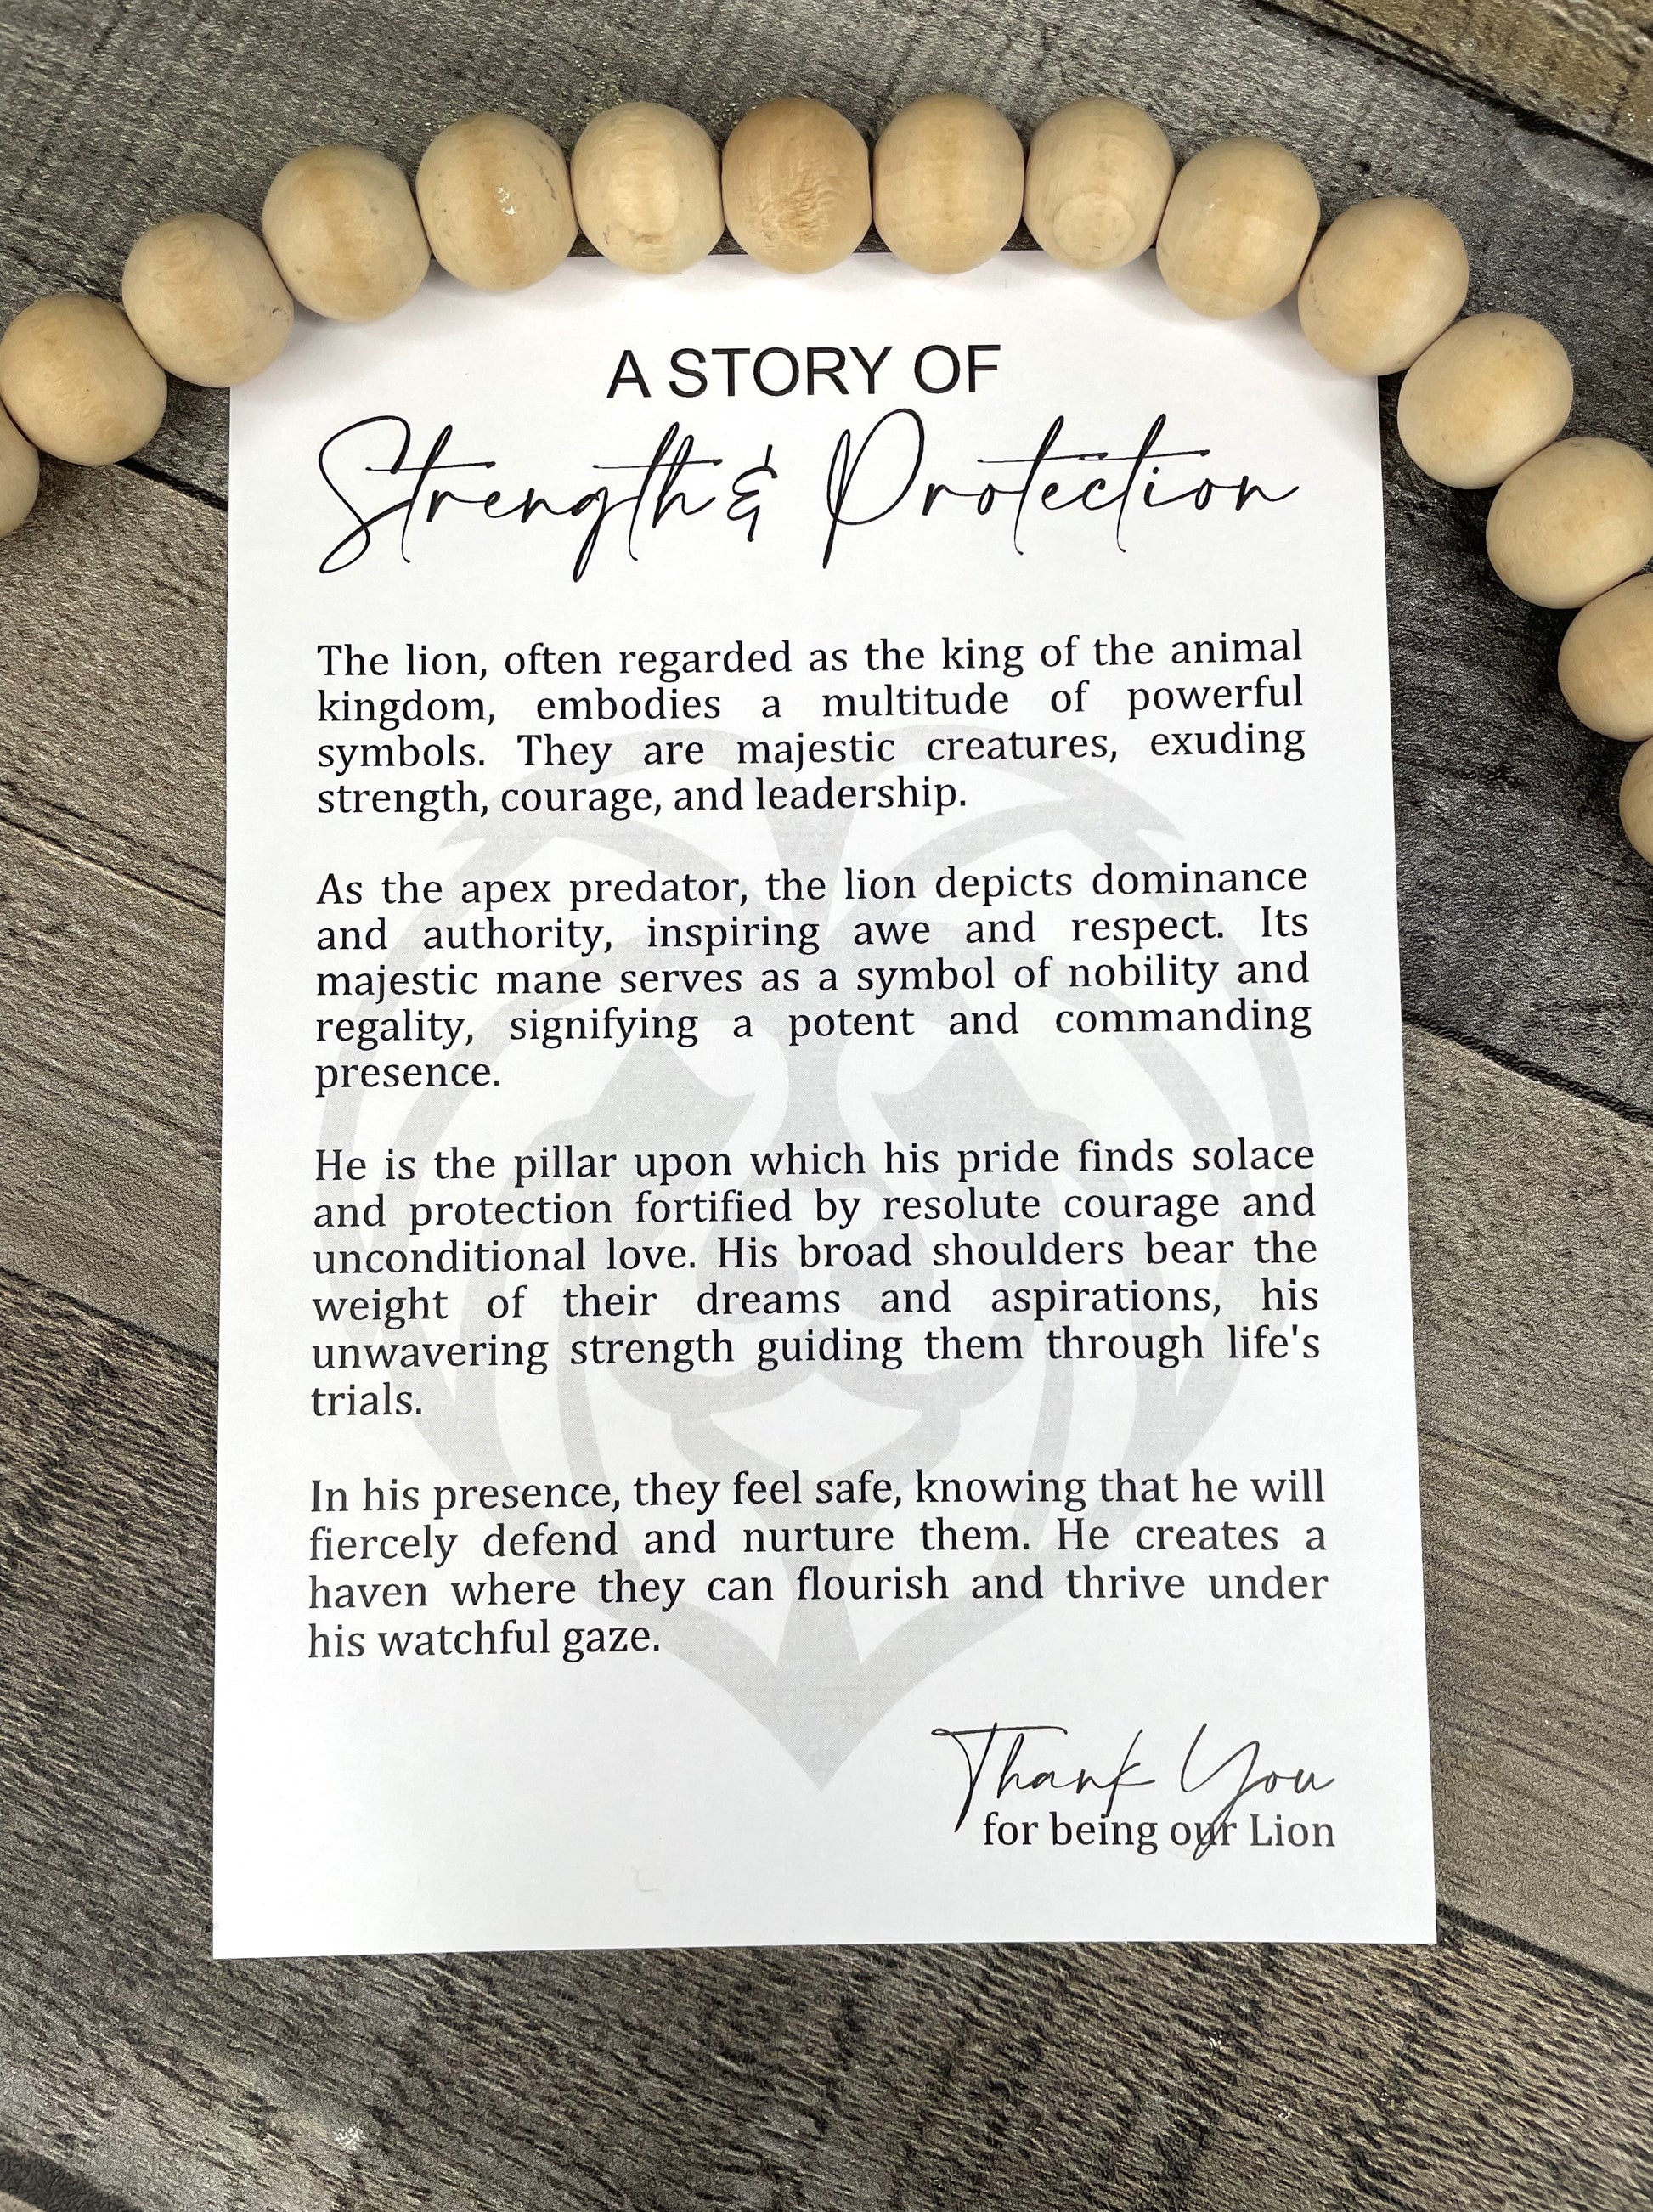 A STORY OF
Strength & Protection
The lion, often regarded as the king of the animal
kingdom, embodies a multitude of powerful
symbols. They are majestic creatures, exuding
strength, courage, and leadership.
As the apex predator, the lion depicts dominance
and authority, inspiring awe and respect. Its
majestic mane serves as a symbol of nobility and
regality, signifying a potent and commanding
presence.
He is the pillar upon which his pride finds solace
and protection fortified by resolute courage and
unconditional love. His broad shoulders bear the
weight of their dreams and aspirations, his
unwavering strength guiding them through life's
trials.
In his presence, they feel safe, knowing that he will
fiercely defend and nurture them. He creates a
haven where they can flourish and thrive under
his watchful gaze.
Thank You
for being our Lion